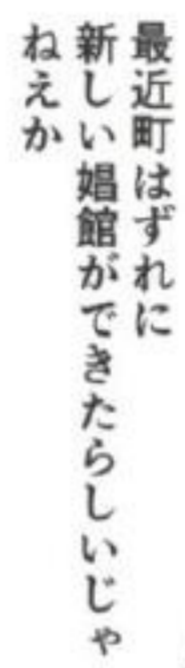 最近町はずれに
新しい娼館ができたらしいじゃ
ねえか